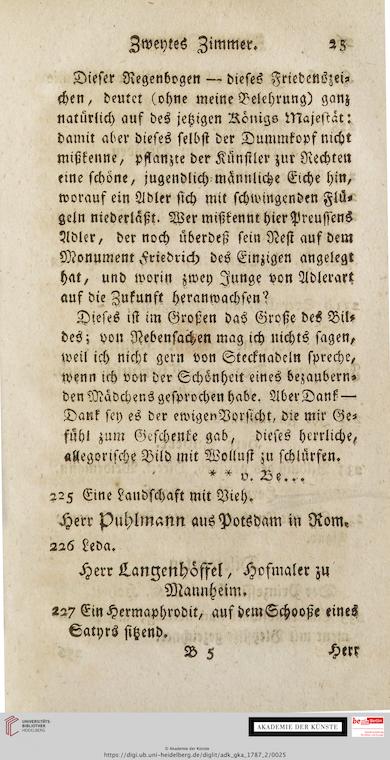 Zweytes Zimmer. 25
Dieser Regenbogen — dieses Friedenszei-
chen, deutet (ohne meine Belehrung) ganz
natürlich auf des jetzigen Königs Majestät:
damit aber dieses selbst der Dummkopf nicht
mißkenne, pflanzte der Künstler zur Rechten
eine schöne, jugendlich männliche Eiche hin,
worauf ein Adler sich mit schwingenden Flü-
geln niederläßt. Wer mißkennt hier Preussens
Adler, der noch überdeß sein Nest auf dem
Monument Friedrich des Einzigen angelegt
hat, und worin zwey Junge von Adlerart
auf die Zukunft heranwachsen?
Dieses ist im Großen das Große des Bil-
des; von Nebensachen mag ich nichts sagen,
weil ich nicht gern von Stecknadeln spreche,
wenn ich von der Schönheit eines bezaubern-
den Mädchens gesprochen habe. Aber Dank —
Dank sey es der ewigen Vorsicht, die mir Ge-
fühl zum Geschenke gab, dieses herrliche,
allegorische Bild mit Wollust zu schlürfen.
* * v. Be...
225 Eine Landschaft mit Vieh.
Herr Puhlmann aus Potsdam in Rom.
226 Leda.
Herr Langenhöffel, Hofmaler zu
Mannheim.
227 Ein Hermaphrodit, auf dem Schooße eines
Satyrs sitzend.
B 5 Herr
UNIVERSITÄTS-
BIBLIOTHEK
HEIDELBERG
AKADEMIE DER KÜNSTE
be Berlin
© Akademie der Künste
https://digi.ub.uni-heidelberg.de/diglit/adk_gka_1787_2/0025